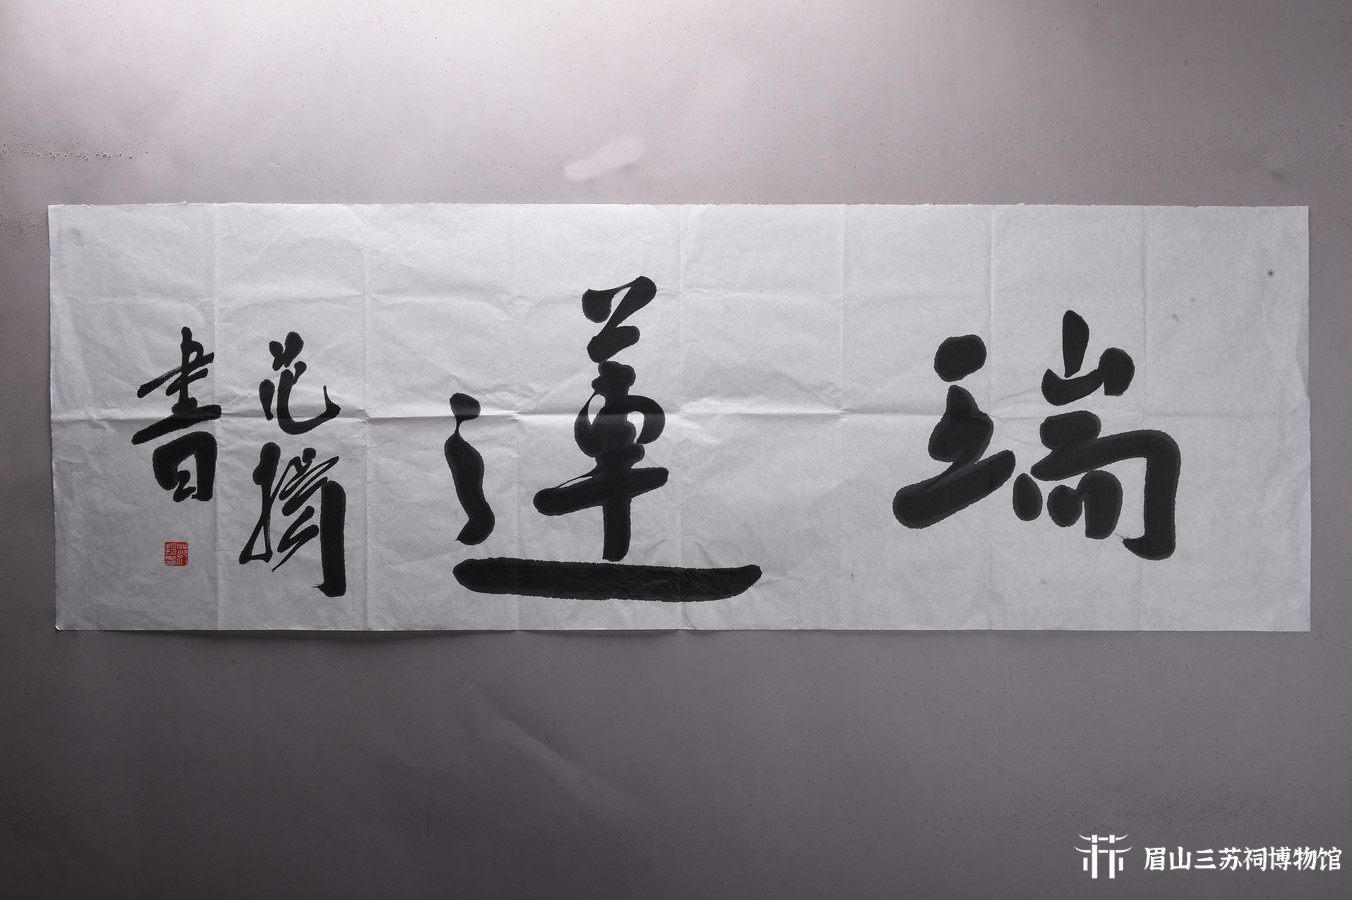 瑞蓮
范
書
眉山三苏祠博物馆